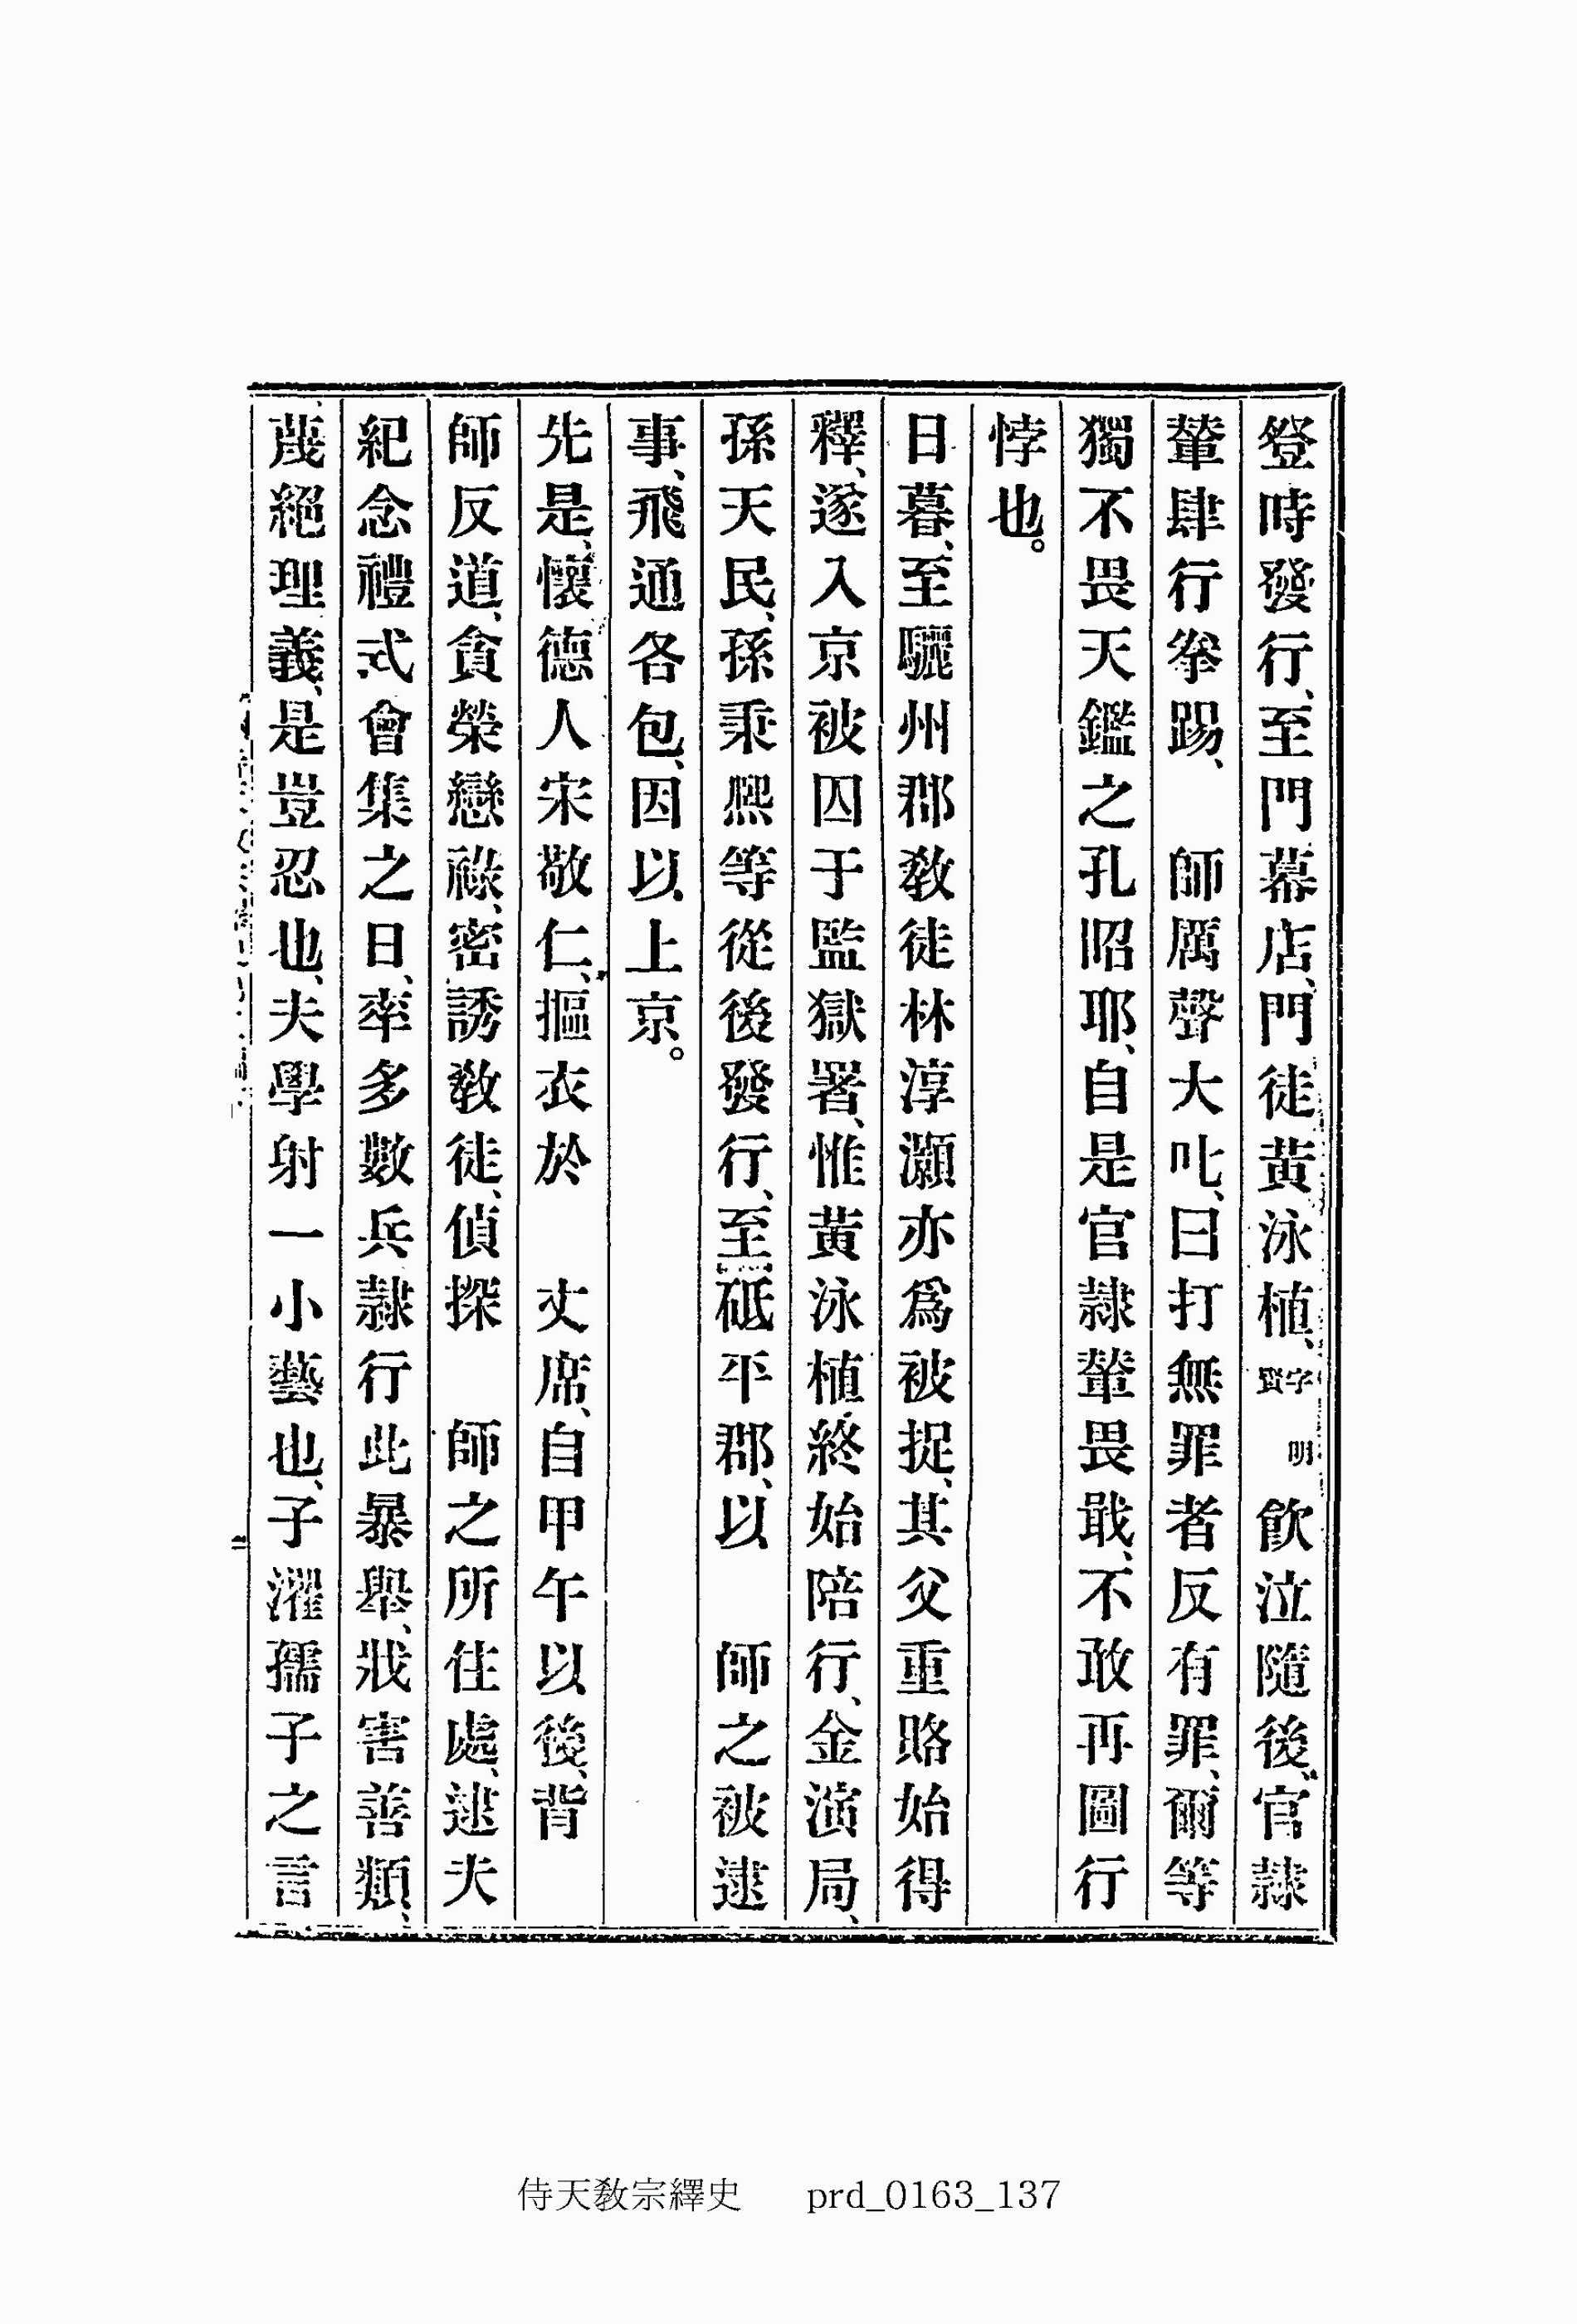 登時發行、至門幕店、門徒黃泳植、字明賢飮泣隨後、官隷
輩肆行拳踢、　師厲聲大叱、曰打無罪者反有罪、爾等
獨不畏天鑑之孔昭耶、自是官隷輩畏戢、不敢再圖行
悖也。
日暮、至驪州郡敎徒林淳灝亦爲被捉、其父重賂始得
釋、遂入京被囚于監獄署、惟黃泳植、終始陪行、金演局、
孫天民、孫秉熙等從後發行、至砥平郡、以　師之被逮
事、飛通各包、因以上京。
先是、懷德人宋敬仁、摳衣於　丈席、自甲午以後、背
師反道、貪榮戀祿、密誘敎徒、偵探　師之所住處、逮夫
紀念禮式會集之日、率多數兵隷行此暴舉、戕害善類、
蔑絕理義、是豈忍也、夫學射一小藝也、子濯孺子之言
二
侍天敎宗繹史　prd_0163_137